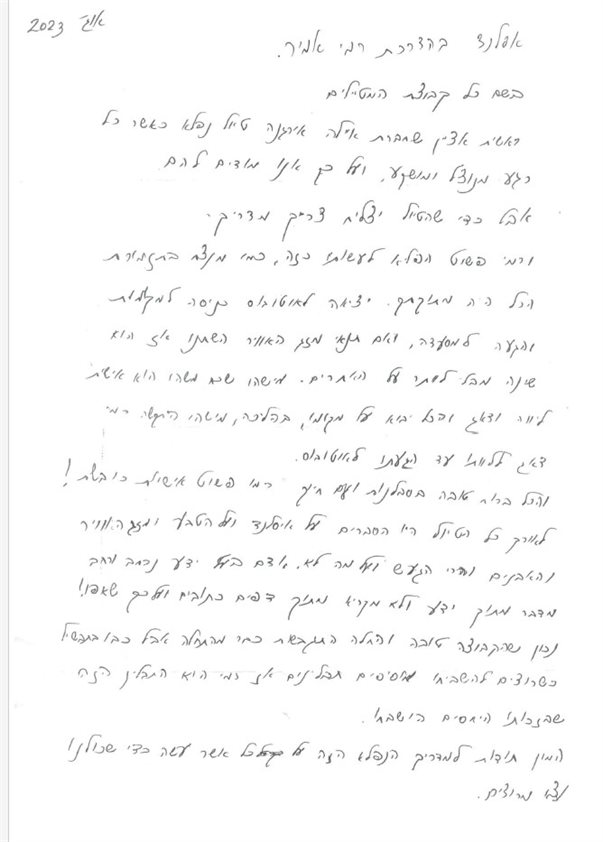 אוג׳ 2023
איסלנד בהדרכת רמי אמיר.
בשם כל קבוצת המטיילים
ראשית אציין שחברת אילה אירגנה טיול נפלא כאשר כל
רגע מנוצל ומושקע, ועל כך אנו מודים להם
אבל כדי שהטיול יצליח צריך מדריך.
ורמי פשוט הפליא לעשות כזה, כמי מנצח בתזמורת
הכל היה מתוקתק. יציאה לאוטובוס כניסה למקומות
והגעה למסעדה, ואם תנאי מזג האוויר השתנו אז הוא
שינה מבלי לוותר על האתרים. מישהו שכח משהו הוא אישית
ליווה ודאג שהכל יבוא על מקומו, בהליכה, מישהי התקשה רמי
דאג ללוותו עד הגעתו לאוטובוס.
והכל ברוח טובה בסבלנות ועם חיוך רמי פשוט אישיות כובשת!
לאורך כל הטיול היו הסברים על איסלנד ועל הטבע ומזג האוויר
והאבנים והרי הגעש ועל מה לא. אדם בעל ידע נרחב ורחב
מדבר מתוך ידע ולא מקריא מתוך דפים כתובים ועל כך שאפו!
נכון שהקבוצה טובה והחלה התגבשת כבר מהתחלה אבל כמו בתבשיל
כשרוצים להשביחו מוסיפים תבלינים אז רמי הוא התבלין הזה
שבזכותו היחסים הושבחו.
המון תודות למדריך הנפלא הזה על כל אשר עשה כדי שכולנו
נצא מרוצים.